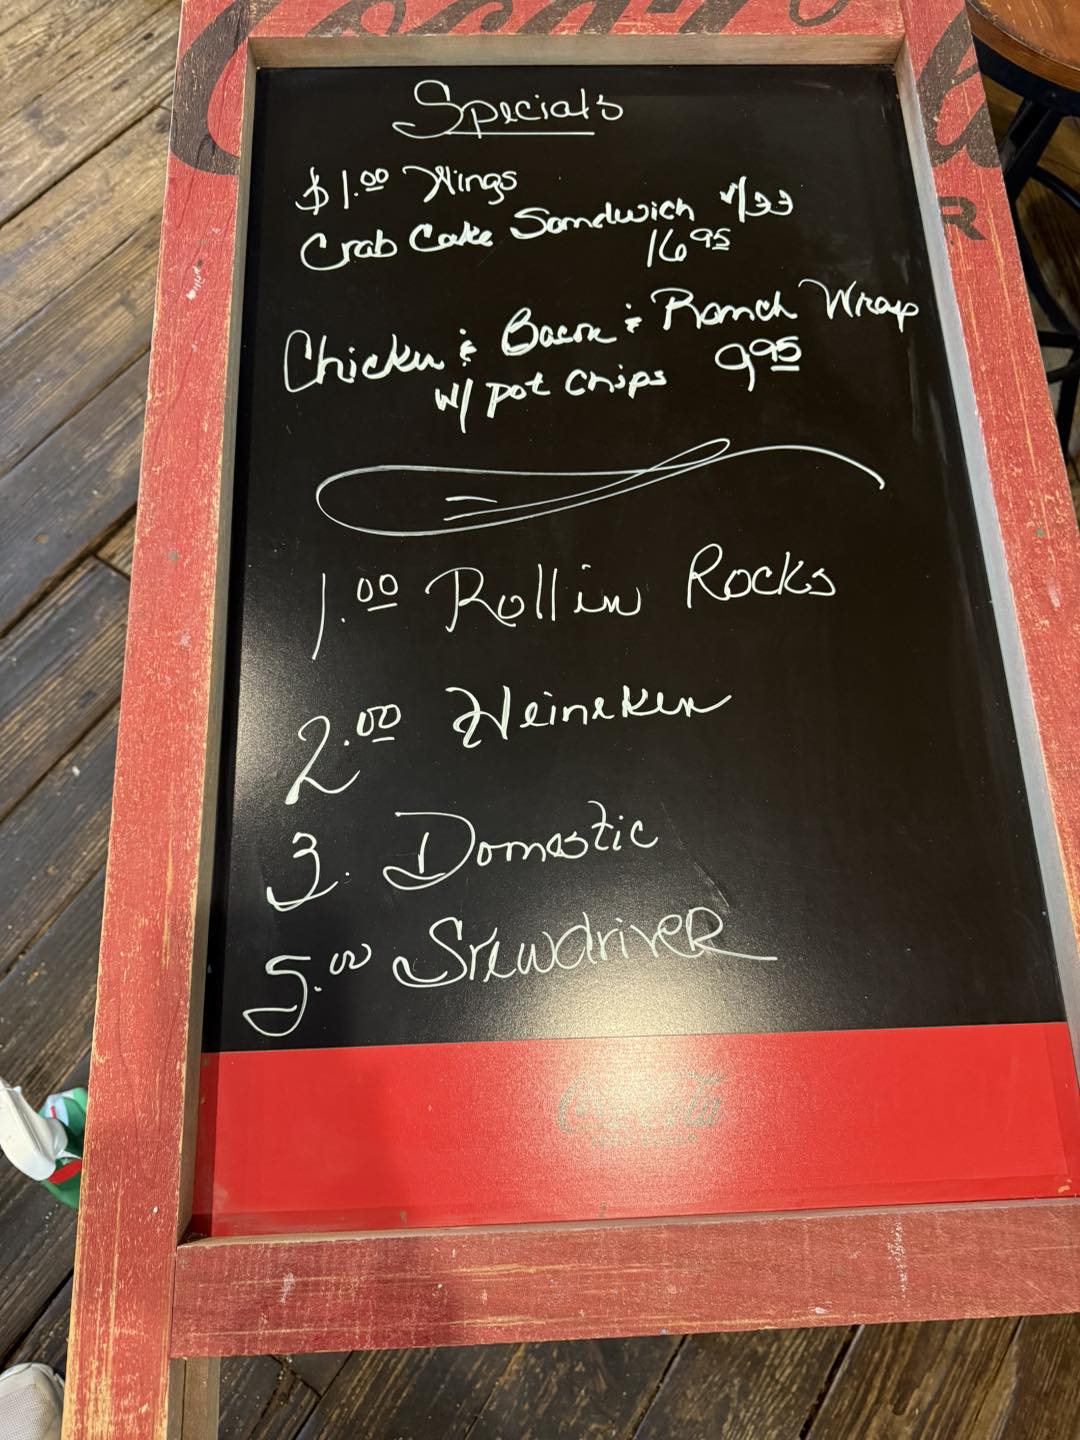 Specials
$1.00 Wings
Crab Cake Sandwich w/FF
16 95
Chicken & Bacon & Ranch Wrap
w/ pot chips 9 95
1.00 Rollin Rocks
2.00 Heineken
3. Domestic
5.00 Screwdriver
Coca-Cola